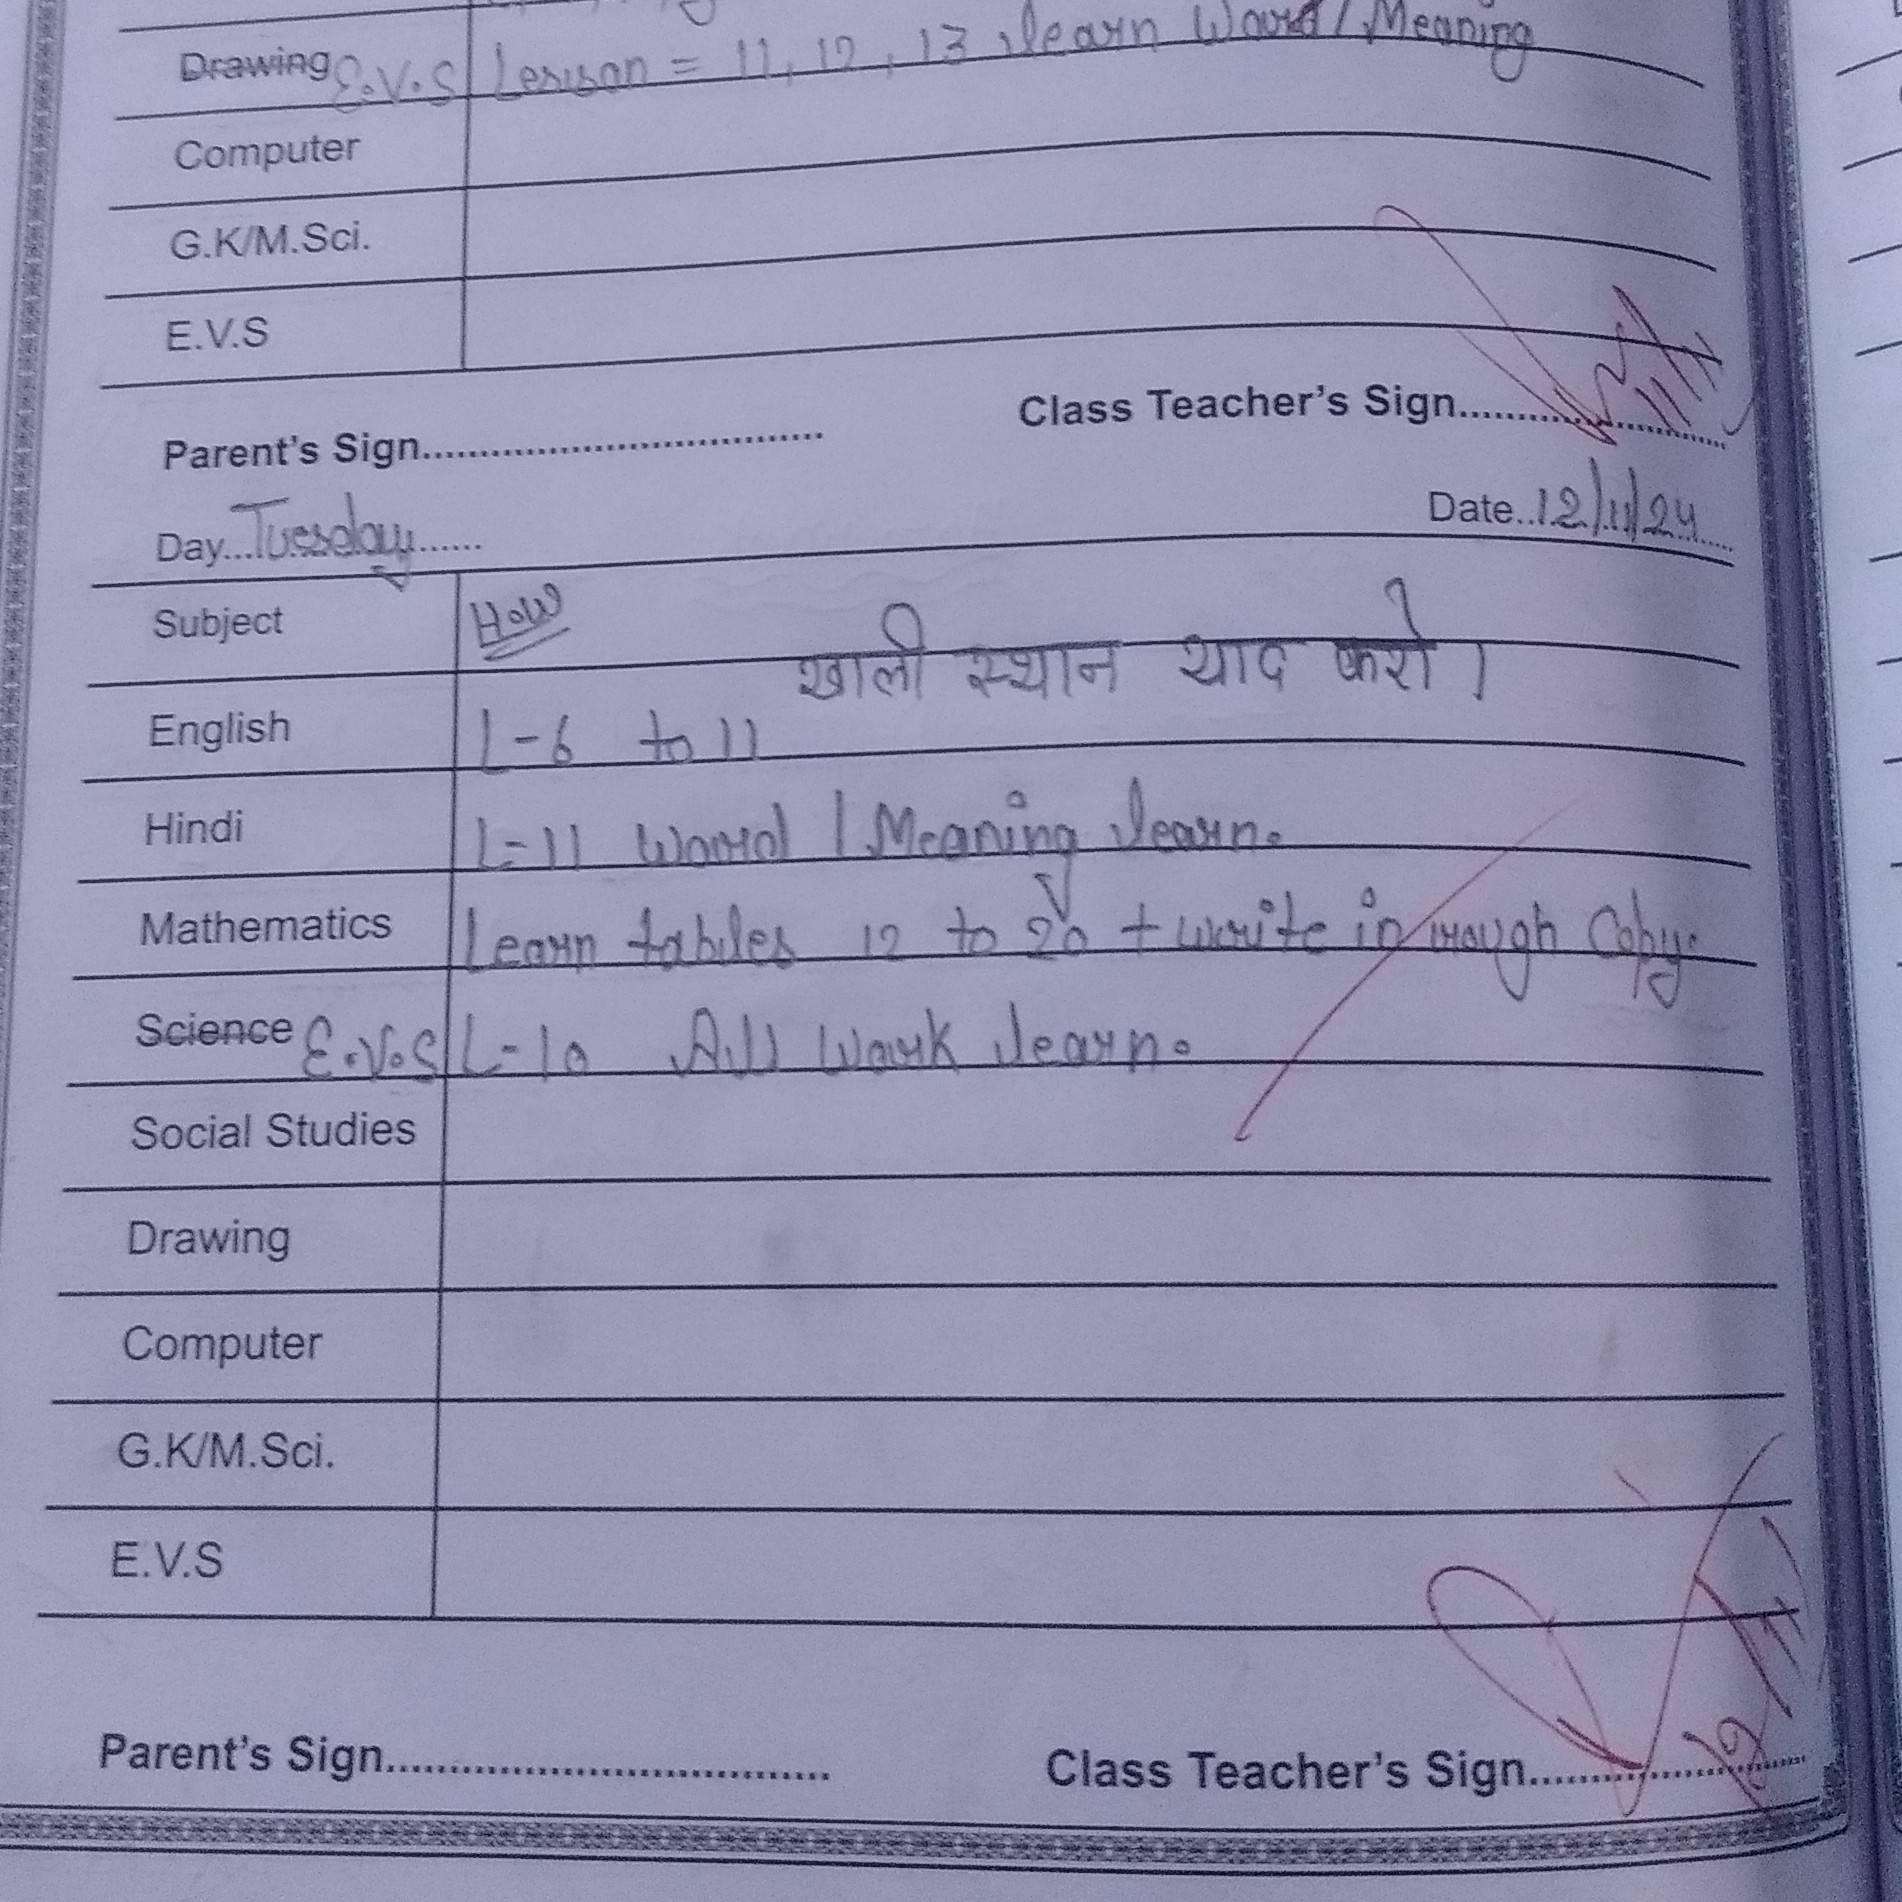 Drawing E.V.S Lesison = 11, 12, 13 learn Word / Meaning
Computer
G.K/M.Sci.
E.V.S
Parent's Sign.................................... Class Teacher's Sign........................
11/11
Day...Tuesday...... Date..12/11/24...
Subject H.W
खाली स्थान याद करो।
English L-6 to 11
Hindi L-11 Word / Meaning learn.
Mathematics Learn tables 12 to 20 + write in rough Copy.
Science E.V.S L-10 All Work learn.
Social Studies
Drawing
Computer
G.K/M.Sci.
E.V.S
Parent's Sign.................................... Class Teacher's Sign........................
12/11